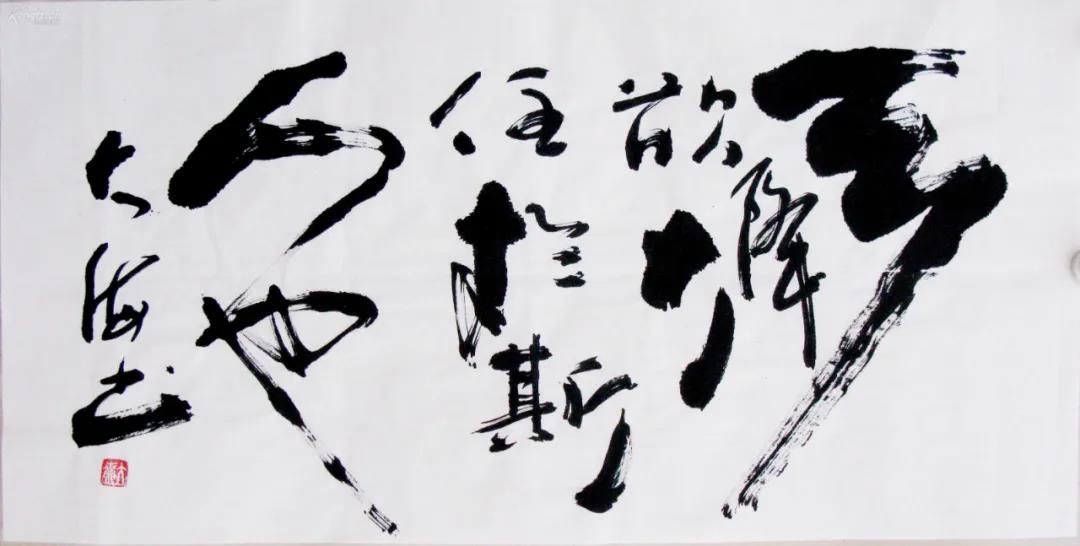 天
欲降大
任於斯
人也
大海书